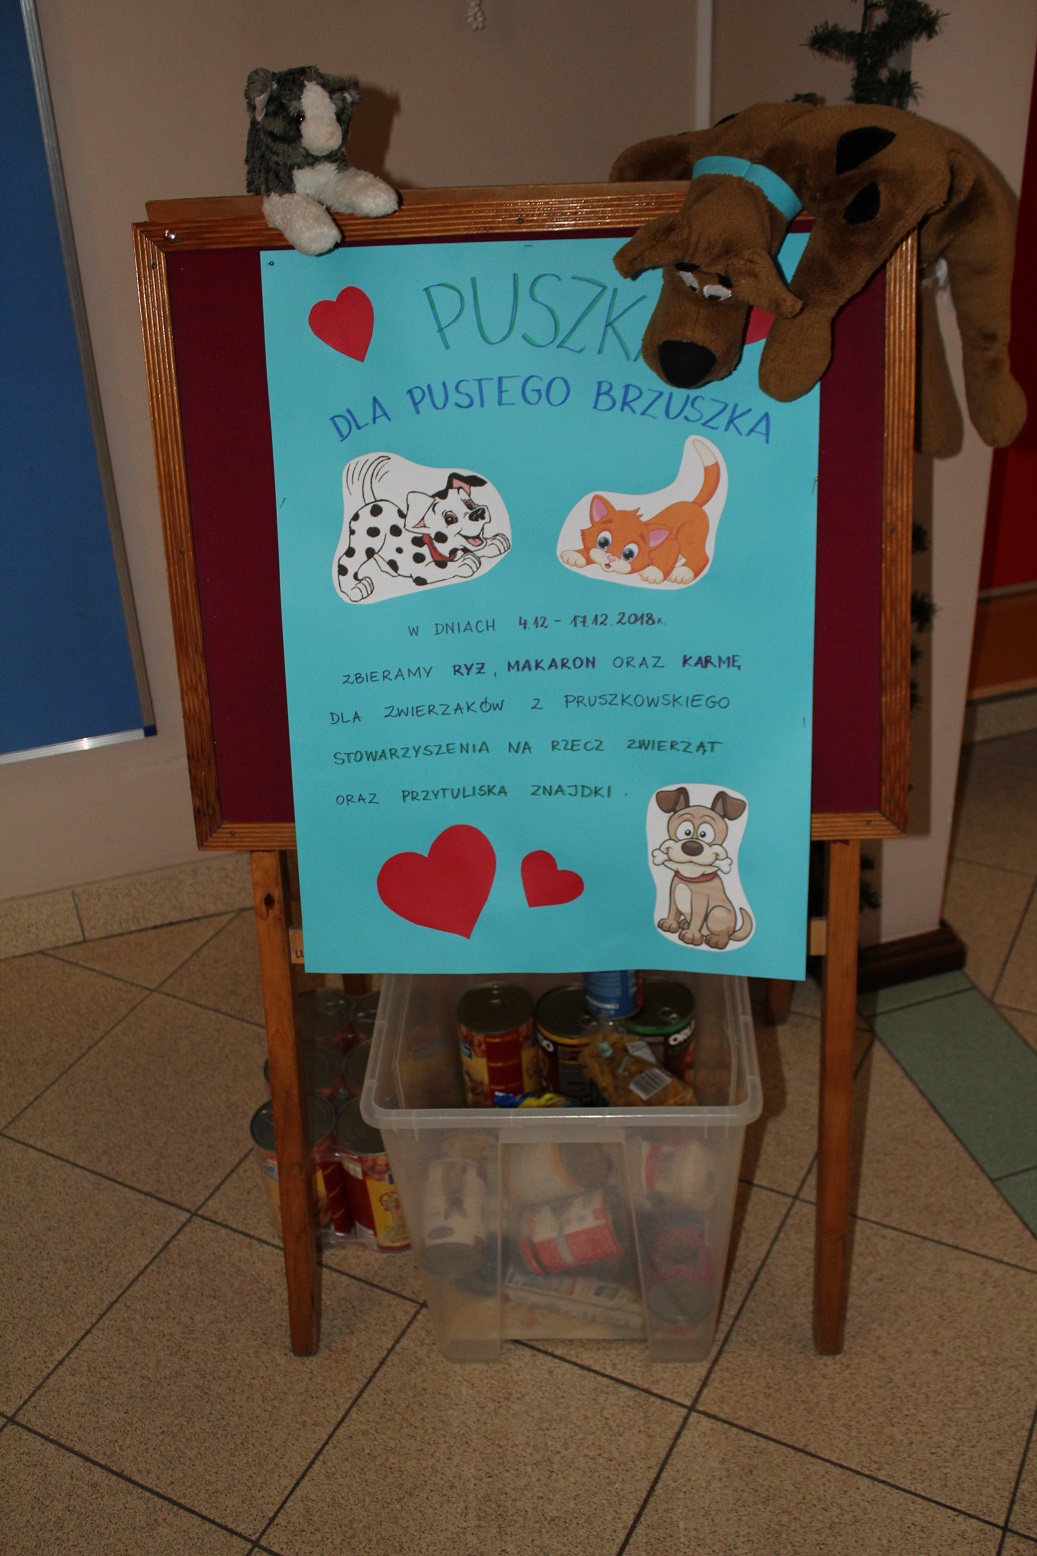 PUSZK
DLA PUSTEGO BRZUSZKA
W DNIACH 4.12 - 17.12.2018r.
ZBIERAMY RYŻ, MAKARON ORAZ KARMĘ
DLA ZWIERZAKÓW Z PRUSZKOWSKIEGO
STOWARZYSZENIA NA RZECZ ZWIERZĄT
ORAZ PRZYTULISKA ZNAJDKI.